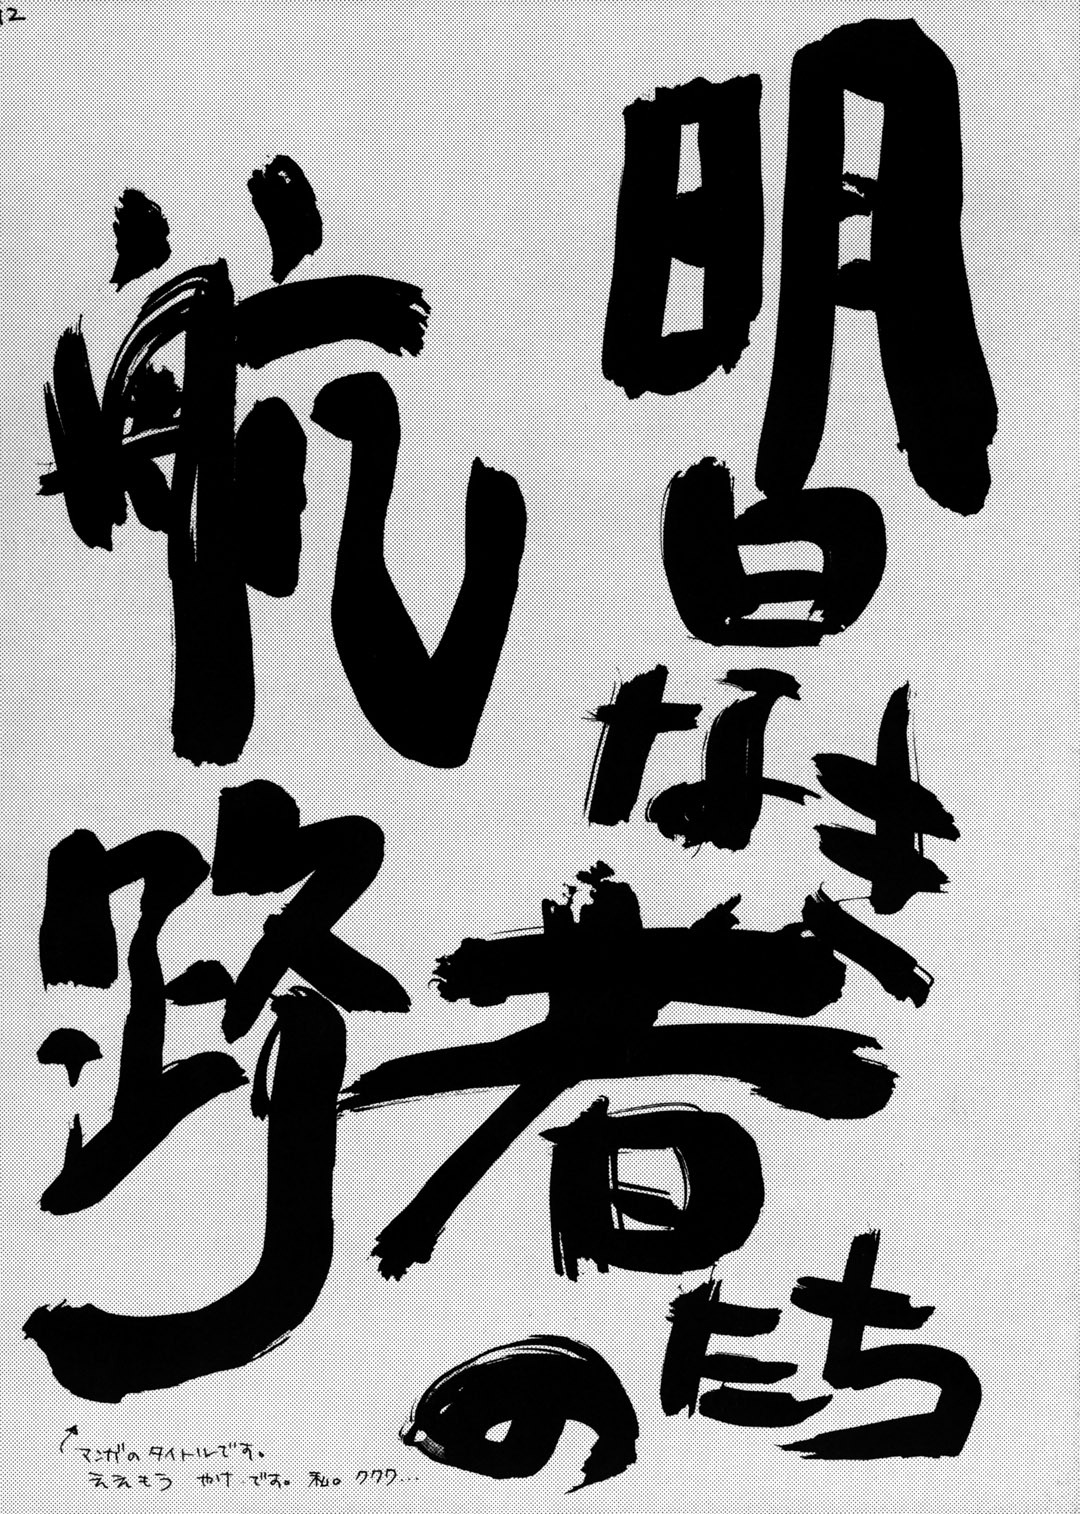 12
明日なき者たちの
航野
マンガのタイトルです。
ええもう やけです。私。ククク…